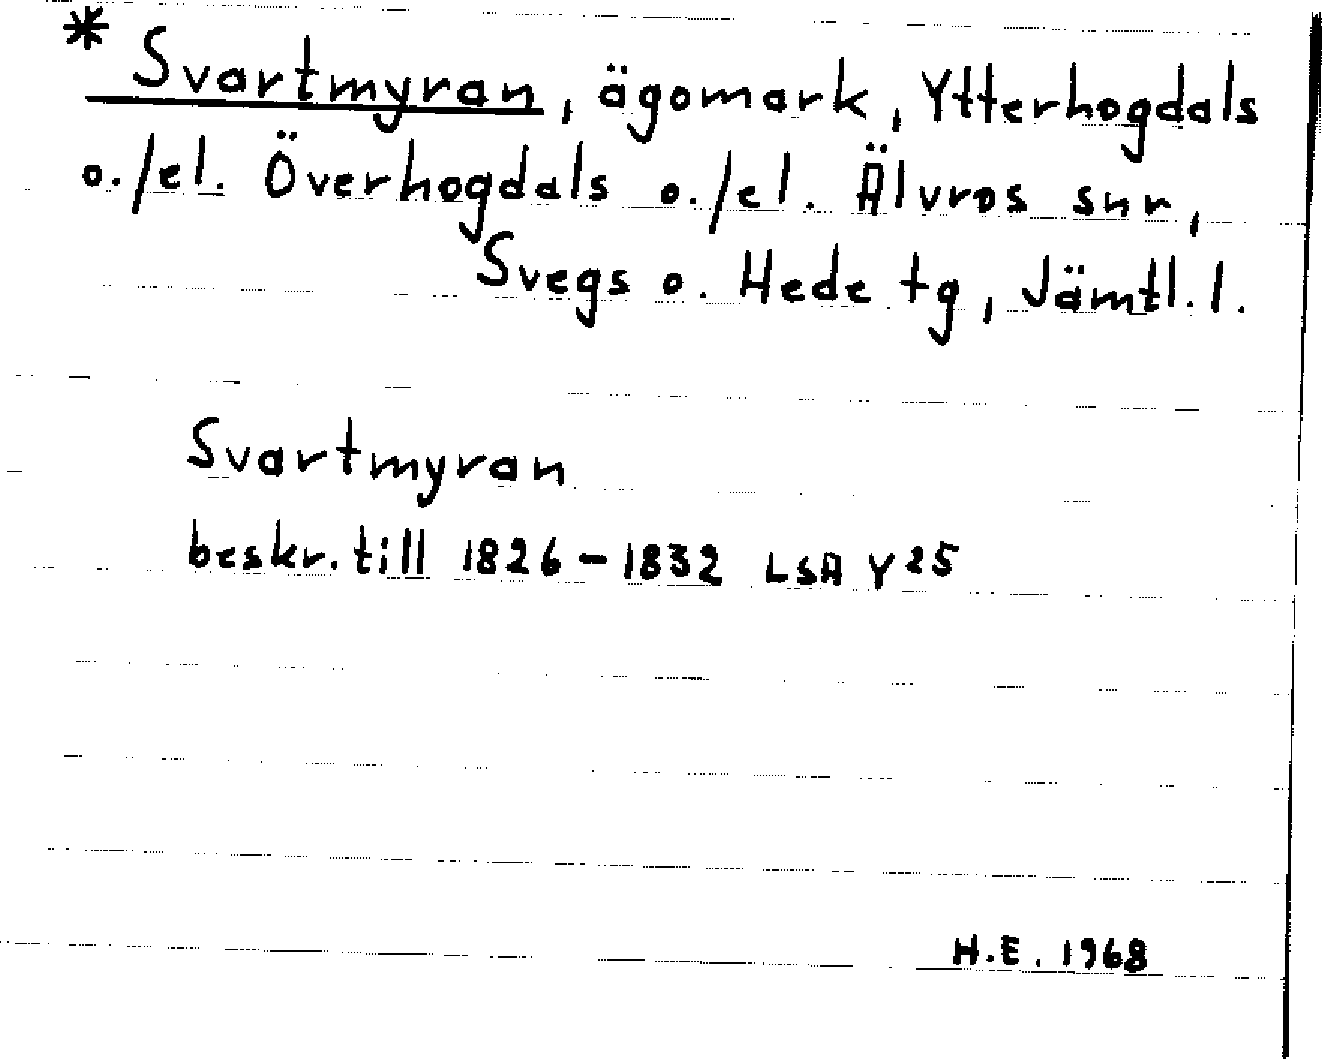 * Svartmyran, ägomark, Ytterhogdals
o./el. Överhogdals o./el. Älvros snr,
Svegs o. Hede tg, Jämtl. l.
Svartmyran
beskr. till 1826-1832 LSA Y25
H.E. 1968